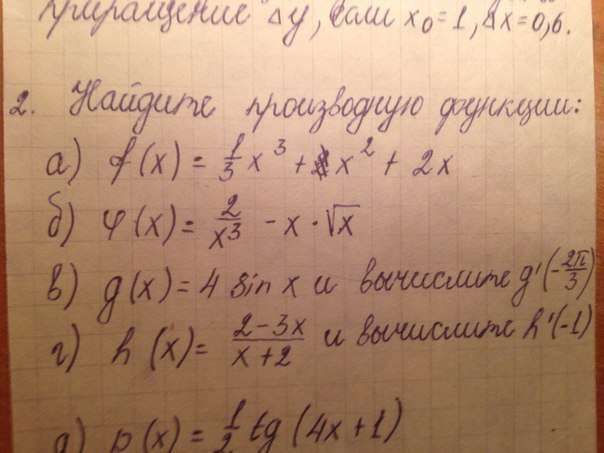 приращение Δy, если x₀=1, Δx=0,6.
2. Найдите производную функции:
а) f(x) = 1/3 x³ + x² + 2x
б) φ(x) = 2/x³ - x·√x
в) g(x) = 4 sin x и вычислите g'(-2π/3)
г) h(x) = (2-3x)/(x+2) и вычислите h'(-1)
д) p(x) = 1/2 tg(4x+1)